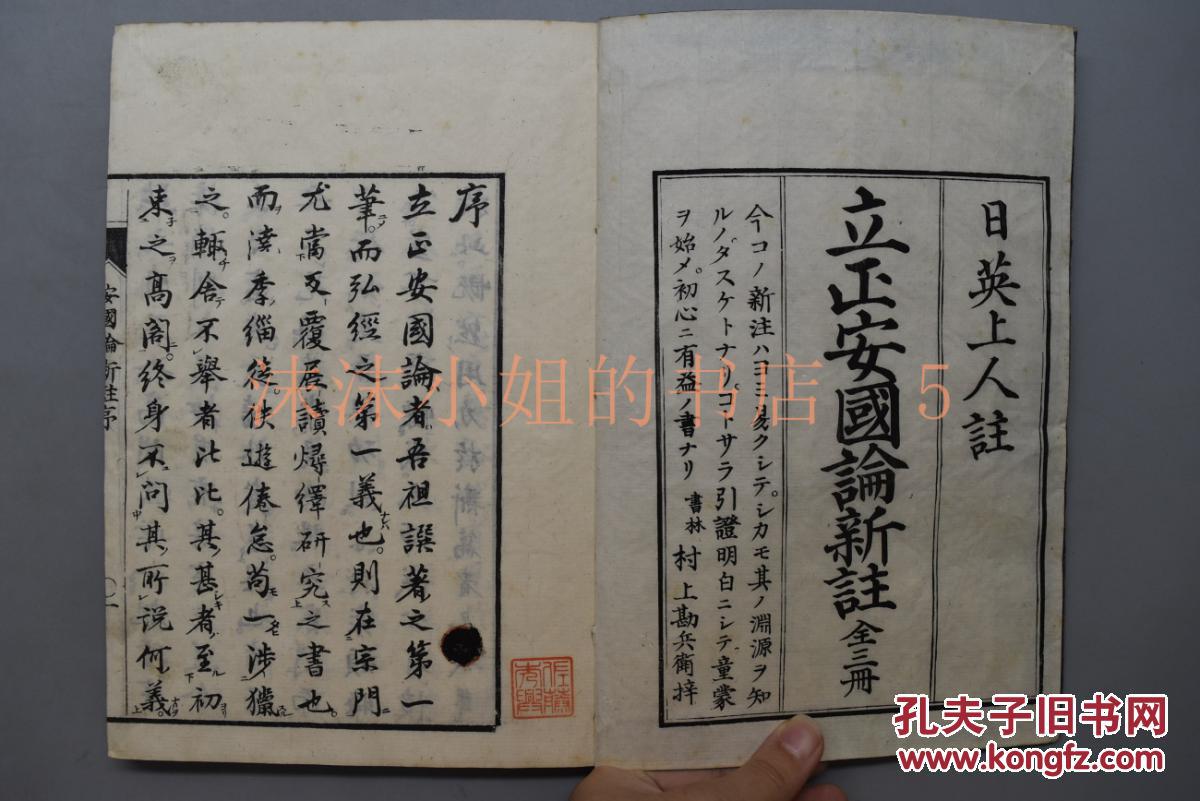 日英上人註
立正安國論新註 全三冊
今コノ新注ハヨミ易クシテ。シカモ其ノ淵源ヲ知
ルノダスケトナリ。コトサラ引證明白ニシテ童蒙
ヲ始メ。初心ニ有益ノ書ナリ 書林 村上勘兵衛梓
序
立正安國論者吾祖譔著之第一
筆。而弘經之第一義也。則在宗門
尤當反覆展讀燖繹研究之書也。
而澆季緇徒。佚遊倦怠。苟一涉獵
之。輙舍不擧者比比。其甚者至初
束之高閣。終身不問其所說何義。
安國論新註序
沫沫小姐的书店 5
孔夫子旧书网
www.kongfz.com